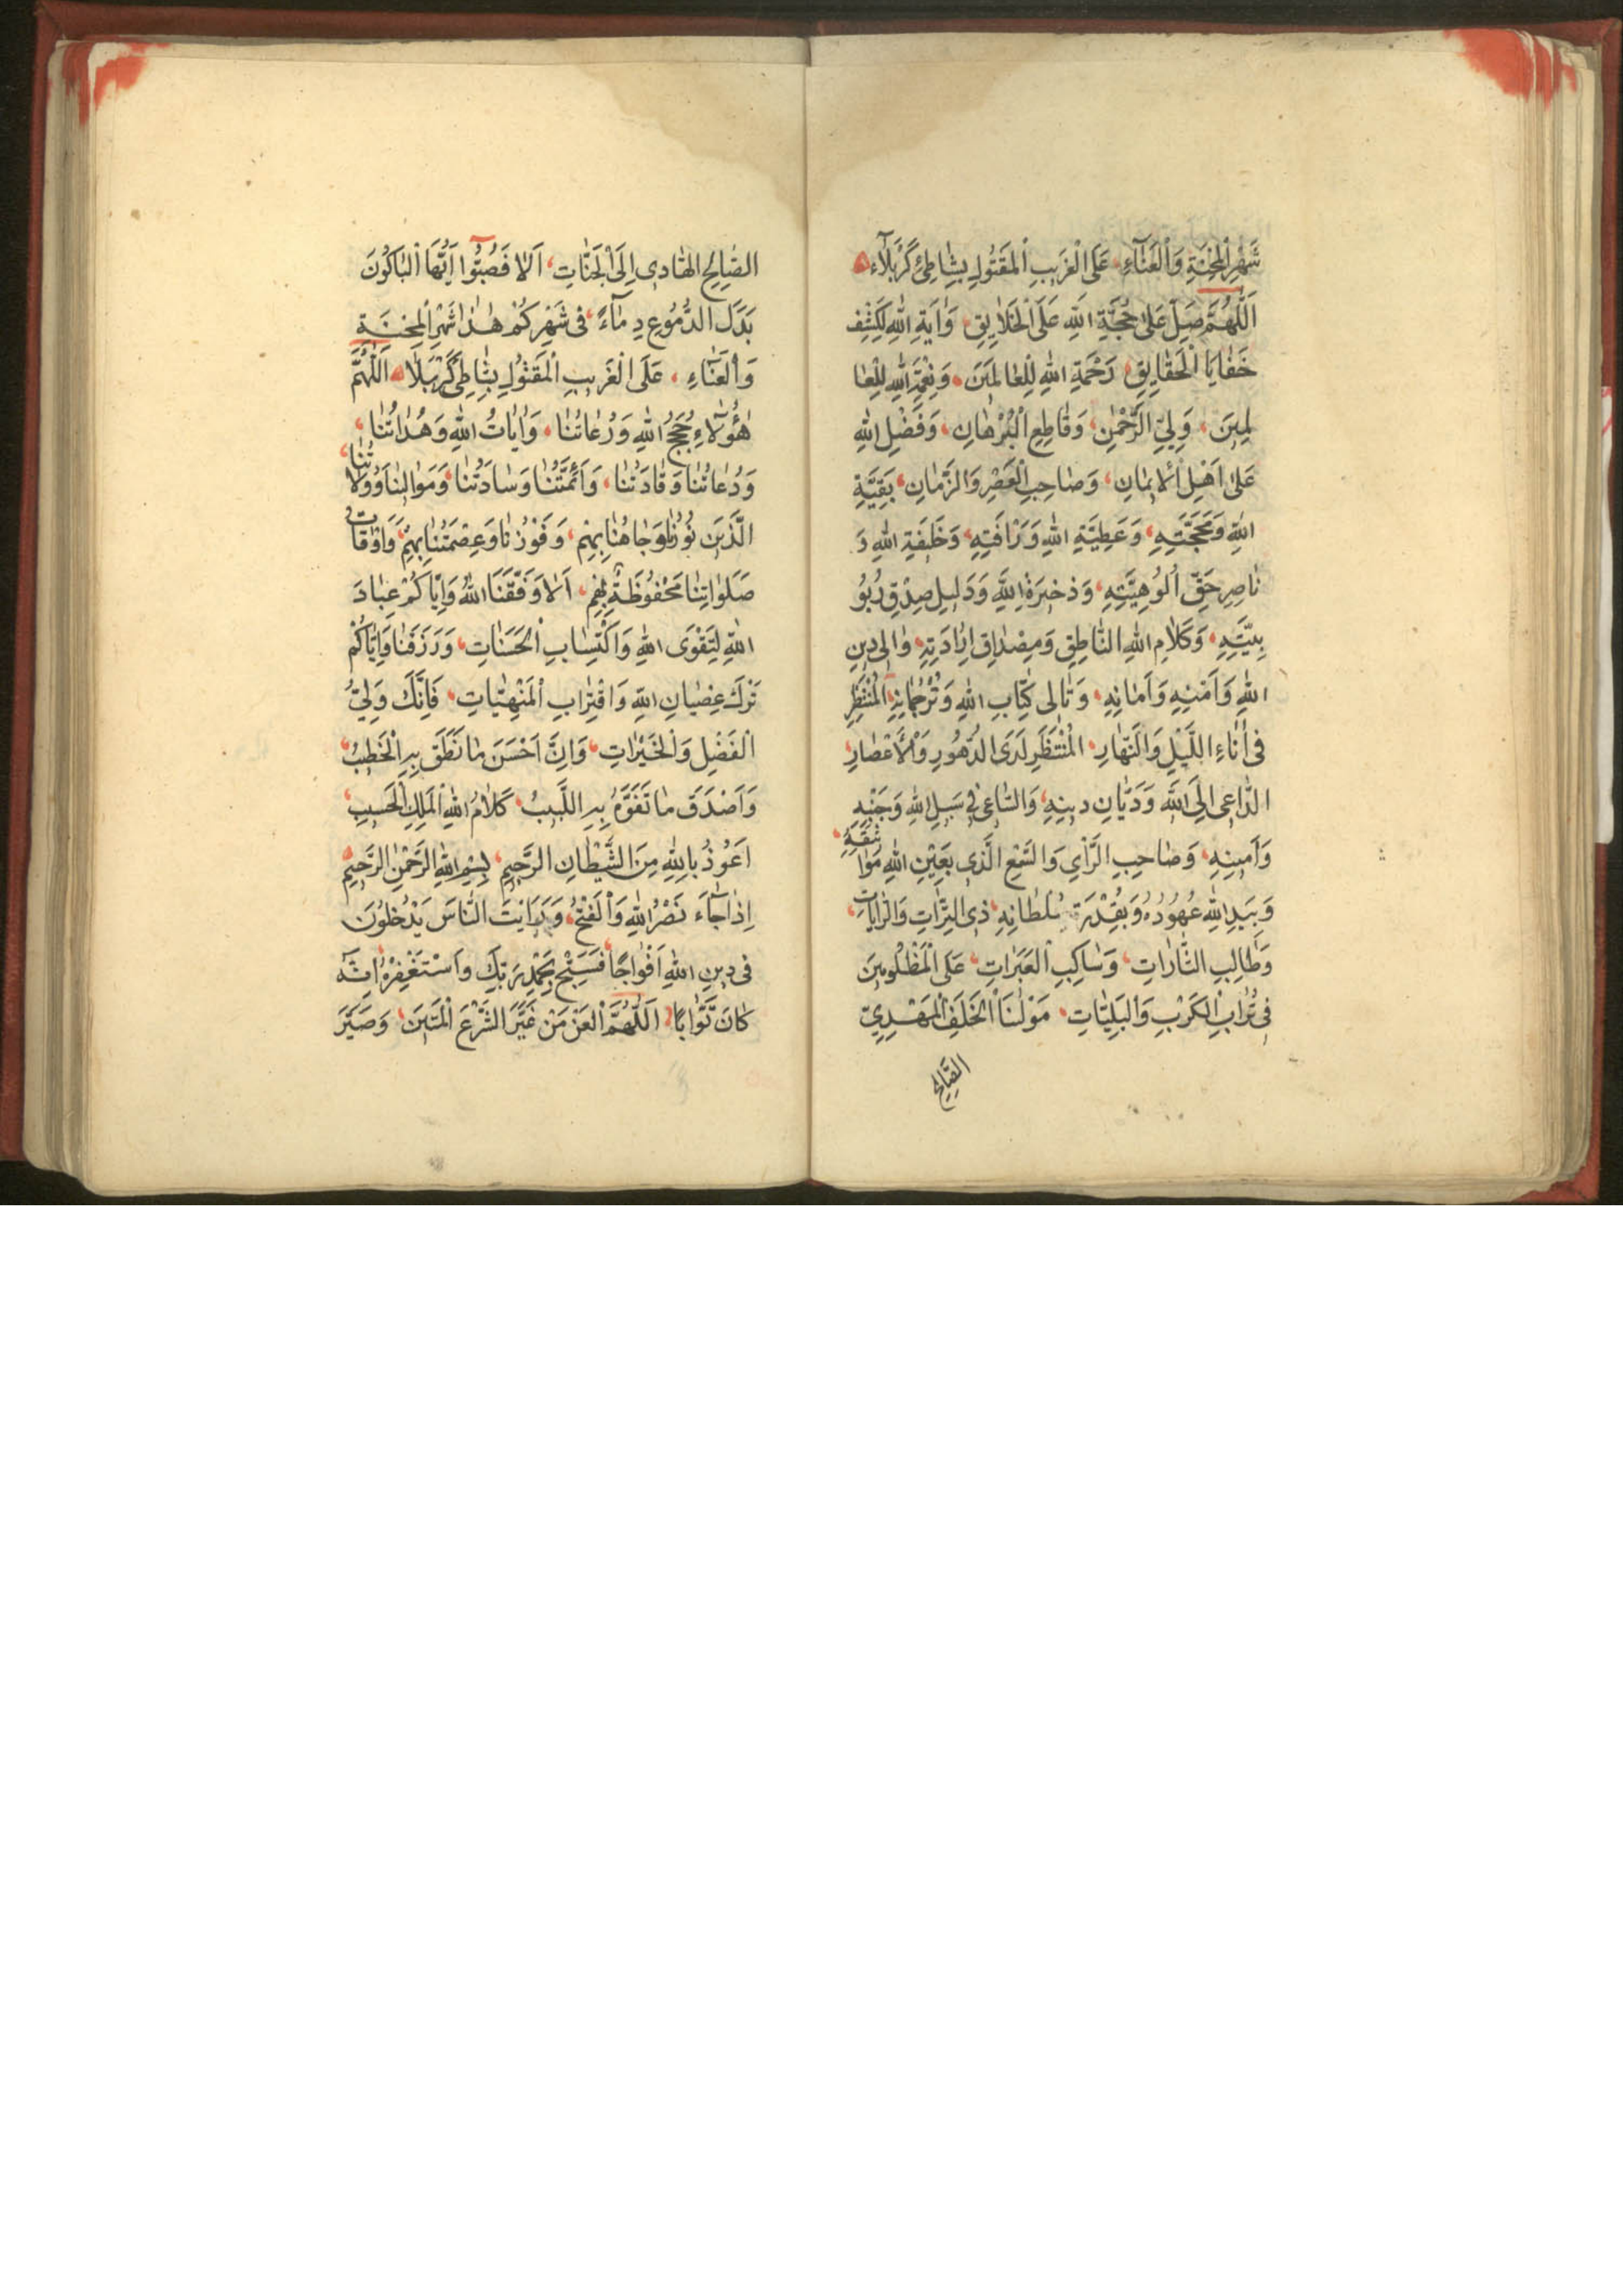 شَهْرِ الْمِحْنَةِ وَالْعَنَآءِ، عَلَى الْغَرِيبِ الْمَقْتُولِ بِشَاطِئِ كَرْبَلَآء
اَللّٰهُمَّ صَلِّ عَلٰى حُجَّةِ اللهِ عَلَى الْخَلَايِقِ، وَاٰيَةِ اللهِ لِكَشْفِ
خَفَايَا الْحَقَايِقِ، رَحْمَةِ اللهِ لِلْعَالَمِينَ، وَنِعْمَةِ اللهِ لِلْعَا
لَمِينَ، وَلِيِّ الرَّحْمٰنِ، وَقَاطِعِ الْبُرْهَانِ، وَفَضْلِ اللهِ
عَلٰى اَهْلِ الْاِيمَانِ، وَصَاحِبِ الْعَصْرِ وَالزَّمَانِ، بَقِيَّةِ
اللهِ وَحُجَّتِهِ، وَعَطِيَّةِ اللهِ وَرَاْفَتِهِ، وَخَلِيفَةِ اللهِ وَ
نَاصِرِ حَقِّ اُلُوهِيَّتِهِ، وَذَخِيرَةِ اللهِ وَدَلِيلِ صِدْقِ رُبُو
بِيَّتِهِ، وَكَلَامِ اللهِ النَّاطِقِ وَمِصْدَاقِ اِرَادَتِهِ، وَالِى دِينِ
اللهِ وَاَمْنِهِ وَاَمَانِهِ، وَتَالِى كِتَابِ اللهِ وَتَرْجُمَانِهِ، الْمُنْتَظِرِ
فِى اٰنَاءِ اللَّيْلِ وَالنَّهَارِ، الْمُنْتَظَرِ لَدَى الدُّهُورِ وَالْاَعْصَارِ،
الدَّاعِى اِلَى اللهِ وَدَيَّانِ دِينِهِ، وَالسَّاعِى فِى سَبِيلِ اللهِ وَجَنْبِهِ
وَاَمِينِهِ، وَصَاحِبِ الرَّاْيِ وَالسَّمْعِ الَّذِى بِعَيْنِ اللهِ مَوَاثِيقُهُ،
وَبِيَدِ اللهِ عُهُودُهُ وَبِقُدْرَةِ سُلْطَانِهِ، ذِى التِّرَاتِ وَالرَّايَاتِ،
وَطَالِبِ الثَّارَاتِ، وَسَاكِبِ الْعَبَرَاتِ، عَلَى الْمَظْلُومِينَ
فِى تُرَابِ الْكَرْبِ وَالْبَلِيَّاتِ، مَوْلٰنَا الْخَلَفِ الْمَهْدِيِّ
الصَّالِحِ
الصَّالِحِ الْهَادِى اِلَى الْجَنَّاتِ، اَلَا فَصُبُّوا اَيُّهَا الْبَاكُونَ
بَدَلَ الدُّمُوعِ دِمَآءً، فِى شَهْرِكُمْ هٰذَا شَهْرِ الْمِحْنَةِ
وَالْعَنَآءِ، عَلَى الْغَرِيبِ الْمَقْتُولِ بِشَاطِئِ كَرْبَلَا اَللّٰهُمَّ
هٰؤُلَآءِ حُجَجُ اللهِ وَرُعَاتُنَا، وَاٰيَاتُ اللهِ وَهُدَاتُنَا،
وَدُعَاتُنَا وَقَادَتُنَا، وَاَئِمَّتُنَا وَسَادَتُنَا، وَمَوَالِينَا وَوُلَاتُنَا،
الَّذِينَ نُورُنَا وَجَاهُنَا بِهِمْ، وَفَوْزُنَا وَعِصْمَتُنَا بِهِمْ، وَاَوْقَاتُ
صَلَوَاتِنَا مَحْفُوظَةٌ بِهِمْ، اَلَا وَفَّقَنَا اللهُ وَاِيَّاكُمْ عِبَادَ
اللهِ لِتَقْوَى اللهِ وَاكْتِسَابِ الْحَسَنَاتِ، وَرَزَقَنَا وَاِيَّاكُمْ
تَرْكَ عِصْيَانِ اللهِ وَاقْتِرَابِ الْمَنْهِيَّاتِ، فَاِنَّكَ وَلِيُّ
الْفَضْلِ وَالْخَيْرَاتِ، وَاِنَّ اَحْسَنَ مَا نَطَقَ بِهِ الْخَطِيبُ،
وَاَصْدَقَ مَا تَفَوَّهَ بِهِ اللَّبِيبُ، كَلَامُ اللهِ الْمَلِكِ الْحَسِيبِ،
اَعُوذُ بِاللهِ مِنَ الشَّيْطَانِ الرَّجِيمِ، بِسْمِ اللهِ الرَّحْمٰنِ الرَّحِيمِ
اِذَا جَآءَ نَصْرُ اللهِ وَالْفَتْحُ، وَرَاَيْتَ النَّاسَ يَدْخُلُونَ
فِى دِينِ اللهِ اَفْوَاجًا، فَسَبِّحْ بِحَمْدِ رَبِّكَ وَاسْتَغْفِرْهُ اِنَّهُ
كَانَ تَوَّابًا، اَللّٰهُمَّ الْعَنْ مَنْ غَيَّرَ الشَّرْعَ الْمَتِينَ، وَصَيَّرَ